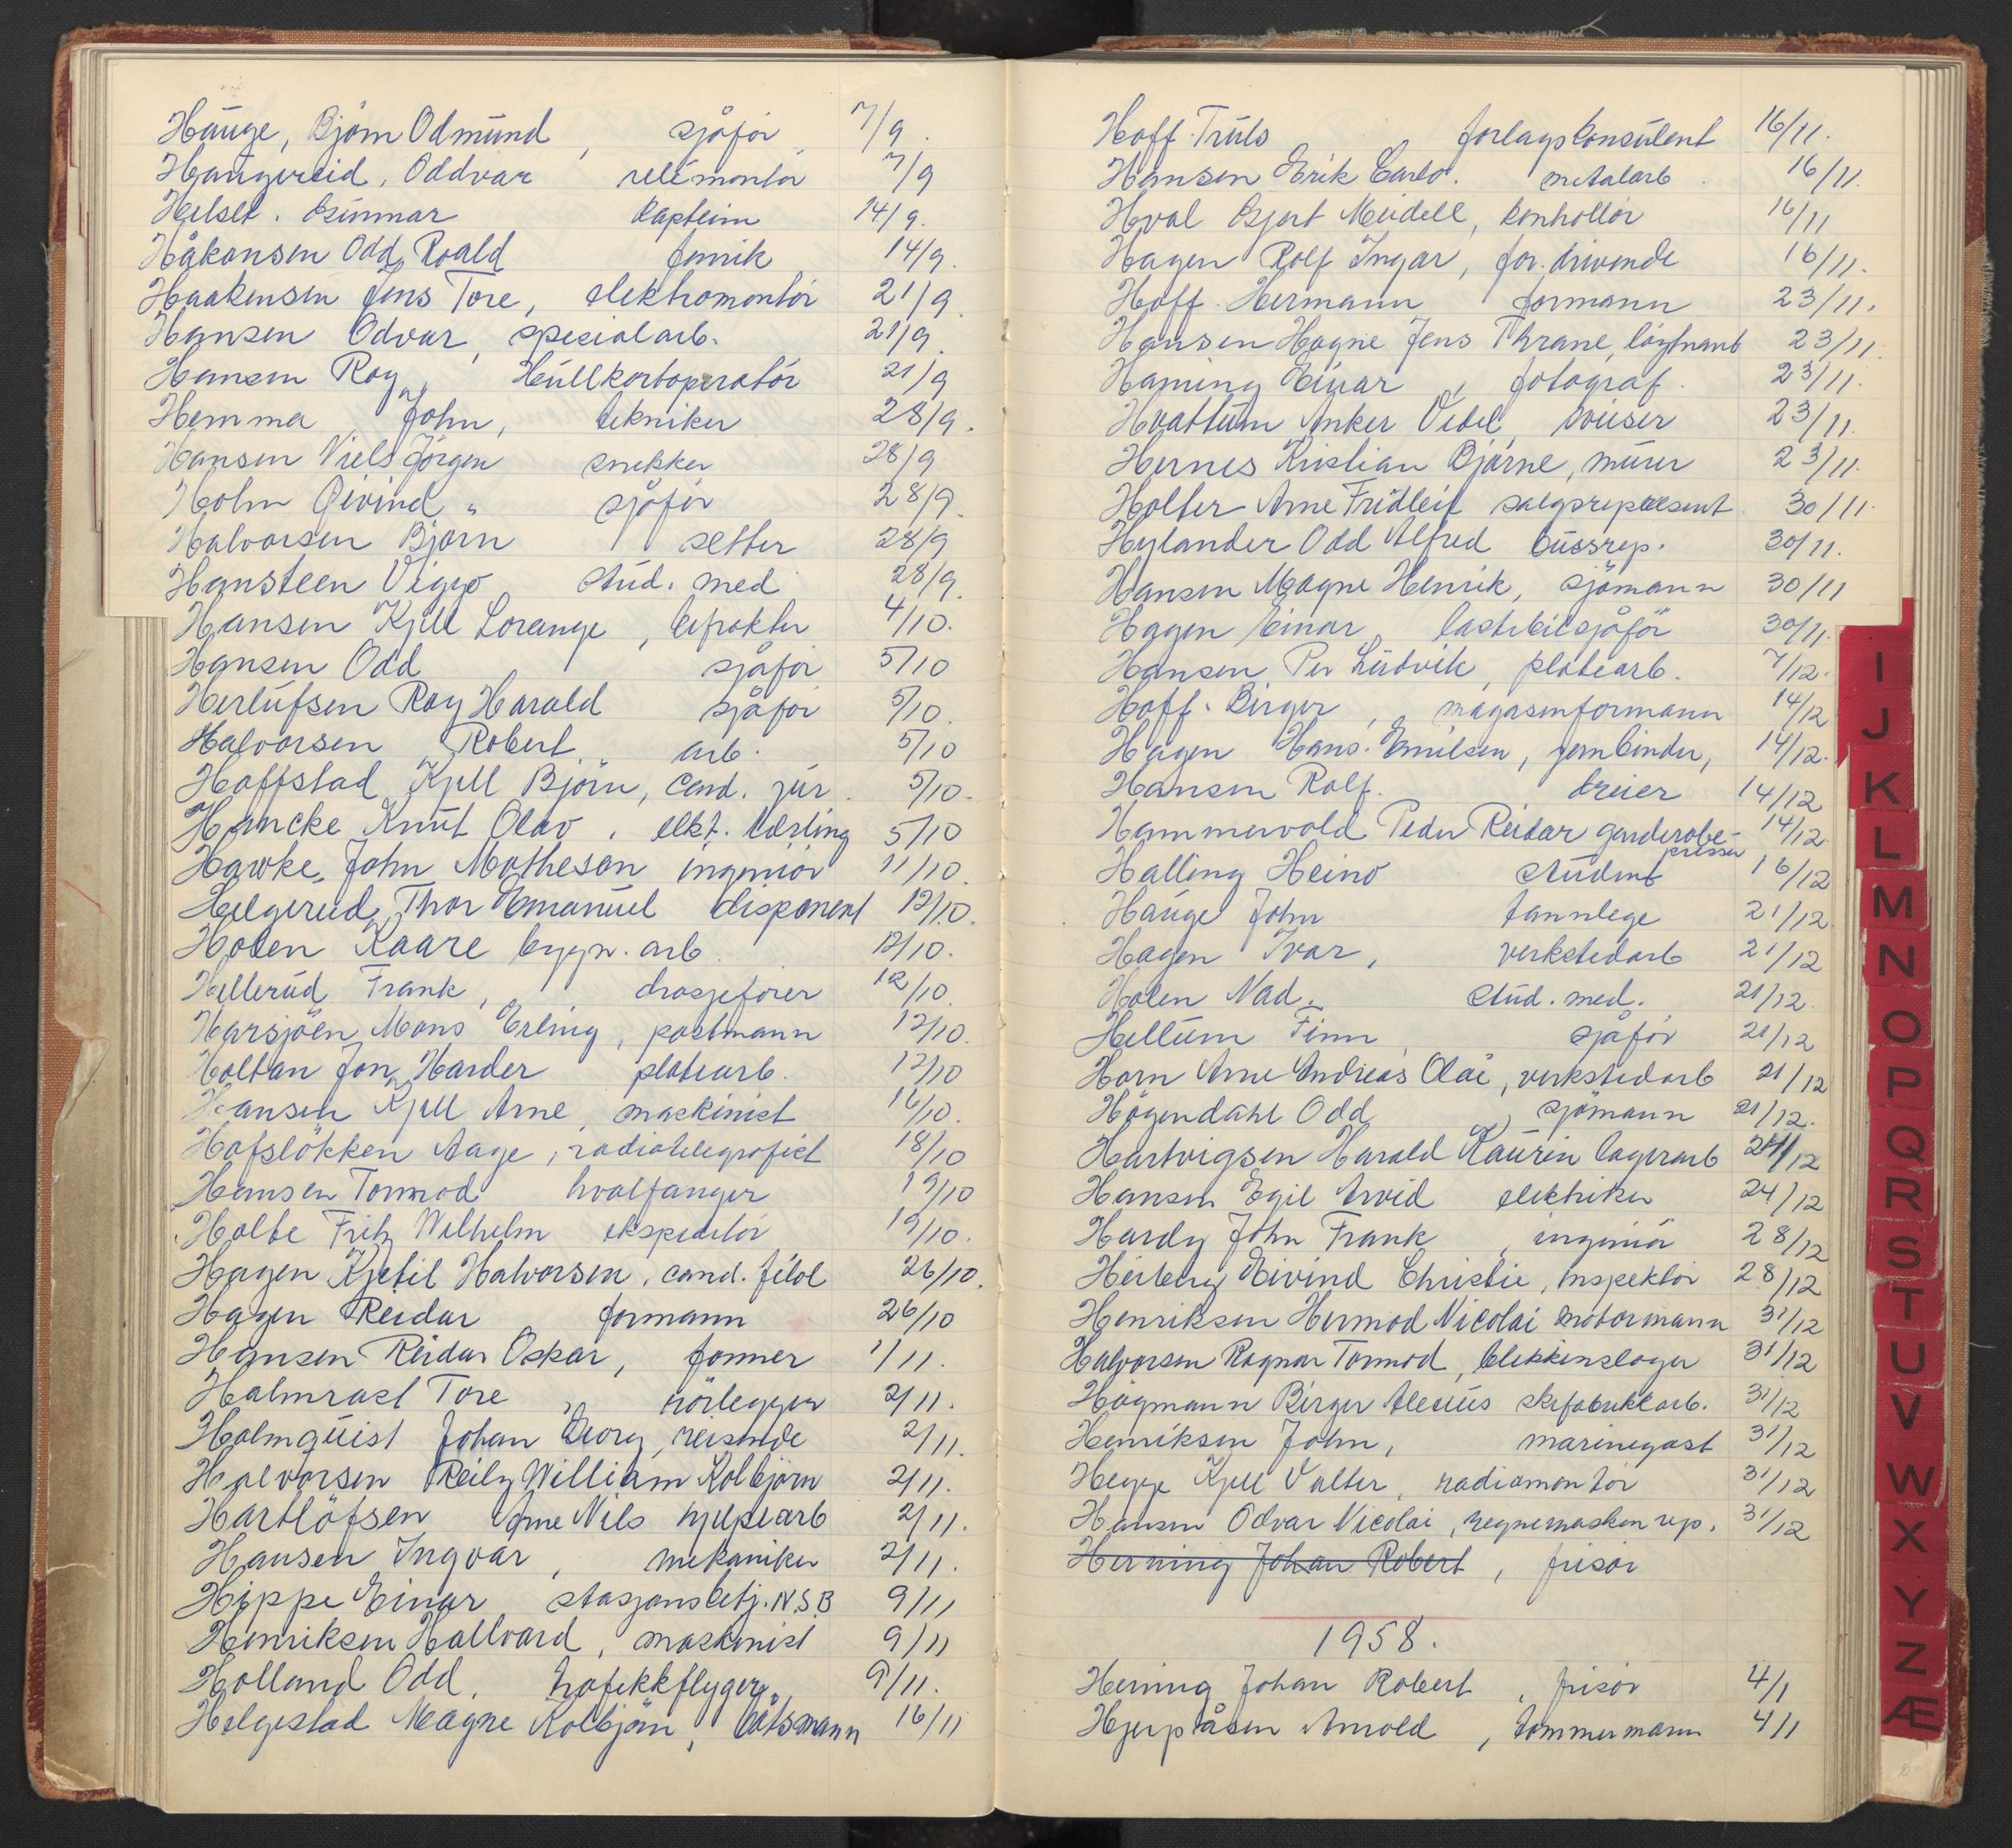 Hauge, Bjørn Odmund, sjåfør, 7/9.
Haugereid, Oddvar relemontør 7/9
Helset. Gunnar kaptein 14/9.
Håkonsen Odd Roald fenrik 14/9.
Haakensen Jens Tore, elektromontør 21/9.
Hansen Odvar, spesialarb. 21/9.
Hansen Roy, Hullkortoperatør 21/9
Hemma, John, tekniker 28/9.
Hansen Niels Jörgen snekker 28/9
Holm Øivind, sjåfør 28/9.
Halvorsen Bjørn setter 28/9
Hansteen Viggo stud. med 28/9.
Hansen Kjell Lorange, befrakter 4/10.
Hansen Odd sjåfør 5/10
Herlufsen Roy Harald sjåfør 5/10.
Halvorsen, Robert, arb. 5/10
Hoffstad Kjell Björn, cand. jur. 5/10.
Hancke Knut Olav, elkt. lærling 5/10
Hawke, John Matheson ingeniör 11/10.
Helgerud, Thor Emanuel disponent 12/10.
Holen Kaare bygn. arb. 12/10.
Hellerud Frank, drosjefører 12/10.
Harsjøen, Mons Erling, postmann 12/10.
Holtan Jon Harder platearb. 12/10
Hansen Kjell Arne, maskinist 16/10.
Hofslökken Aage, radiotelegrafist 18/10
Hansen Tormod hvalfanger 19/10
Holbe Fritz Wilhelm ekspeditør 19/10.
Hagen Kjetil Halvorsen, cand. filol 26/10.
Hagen Reidar, formann 26/10
Hansen Reidar Oskar, former 1/11.
Halmrast Tore, rörlegger 2/11.
Holmquist Johan Georg, reisende 2/11.
Halvorsen Reily William Kolbjörn 2/11.
Hartlöfsen Arne Nils hjelpearb 2/11.
Hansen Ingvar, mekaniker 2/11.
Hippe Einar stasjonsbetj. N.S.B 9/11
Henriksen Hallvard, maskinist 9/11
Holland Odd, trafikkflyger, 9/11.
Helgestad Magne Kolbjörn, båtsmann 16/11
Hoff. Truls forlagskonsulent 16/11.
Hansen Erik Carlo. metalarb. 16/11.
Hval Gjert Meidell, kontrollør 16/11
Hagen Rolf Ingar, for. drivende 16/11.
Hoff. Hermann formann 23/11.
Hansen Hogne Jens Thrane, løytnant 23/11.
Haning Einar, fotograf. 23/11.
Hvattum Anker Vedel, viser 23/11.
Hernes Kristian Bjarne, murer 23/11.
Holter Arne Fridleif salgsrepresent. 30/11.
Hylander Odd Alfred bussrep. 30/11.
Hansen Magne Henrik, sjömann 30/11
Hagen Einar, lastebilsjåför 30/11.
Hansen Per Ludvik, platearb. 7/12.
Hoff. Birger, magasinformann 14/12
Hagen Hans. Emilsen, jernbinder, 14/12.
Hansen Rolf. dreier 14/12
Hammervold Peder Reidar garderobe- 14/12.
presser
Halling Heino student 16/12
Hauge John tannlege 21/12
Hagen Ivar, verkstedarb 21/12
Holen Nad. stud. med. 21/12.
Hellum Finn, sjåfør 21/12
Horn Arne Andreas Olai, verkstedarb 21/12
Högendahl Odd, sjömann 21/12.
Hartvigsen Harald Kaurin lagerarb 24/12
Hansen Egil Arvid elektriker 24/12
Hardy John Frank, ingeniör 28/12
Heiberg Eivind Christie, inspektör 28/12
Henriksen Hermod Nicolai motormann 31/12
Halvorsen Ragnar Tormod, blikkenslager 31/12
Högmann Birger Alexius skifabrikkarb. 31/12
Henriksen John, marinegast 31/12
Hegge Kjell Valter, radiomontör 31/12
Hansen Odvar Nicolai, regnemaskin rep. 31/12
Herning Johan Robert, frisör
1958.
Herning Johan Robert, frisör 4/1
Hjerpåsen Arnold, tømmermann 4/1
I
J
K
L
M
N
O
P
Q
R
S
T
U
V
W
X
Y
Z
Æ